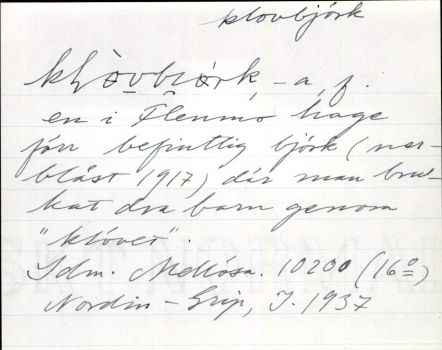 klovbjörk
klòvbiörk, -a, f.
en i Flenmo hage
förr befintlig björk (ner-
blåst 1917) där man bru-
kat dra barn genom
"klòvet"
Sdm. Mellösa. 10200 (16º)
Nordin-Grip, I. 1937